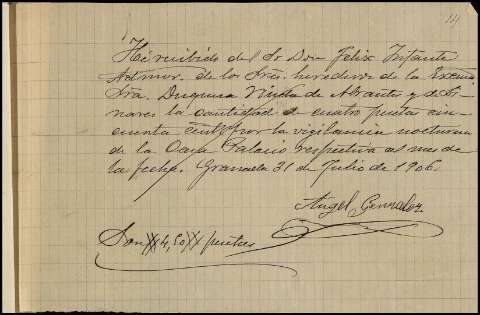 14
He recibido del Sr Don Felix Infante
Admor. de los Sres. herederos de la Excma
Sra. Duquesa Viuda de Abrantes y de Li-
nares la cantidad de cuatro pesetas cin-
cuenta cents por la vigilancia nocturna
de la Casa Palacio respectiva al mes de
la fecha. Granada 31 de Julio de 1906.
Angel Gonzalez
Son 4,50 pesetas